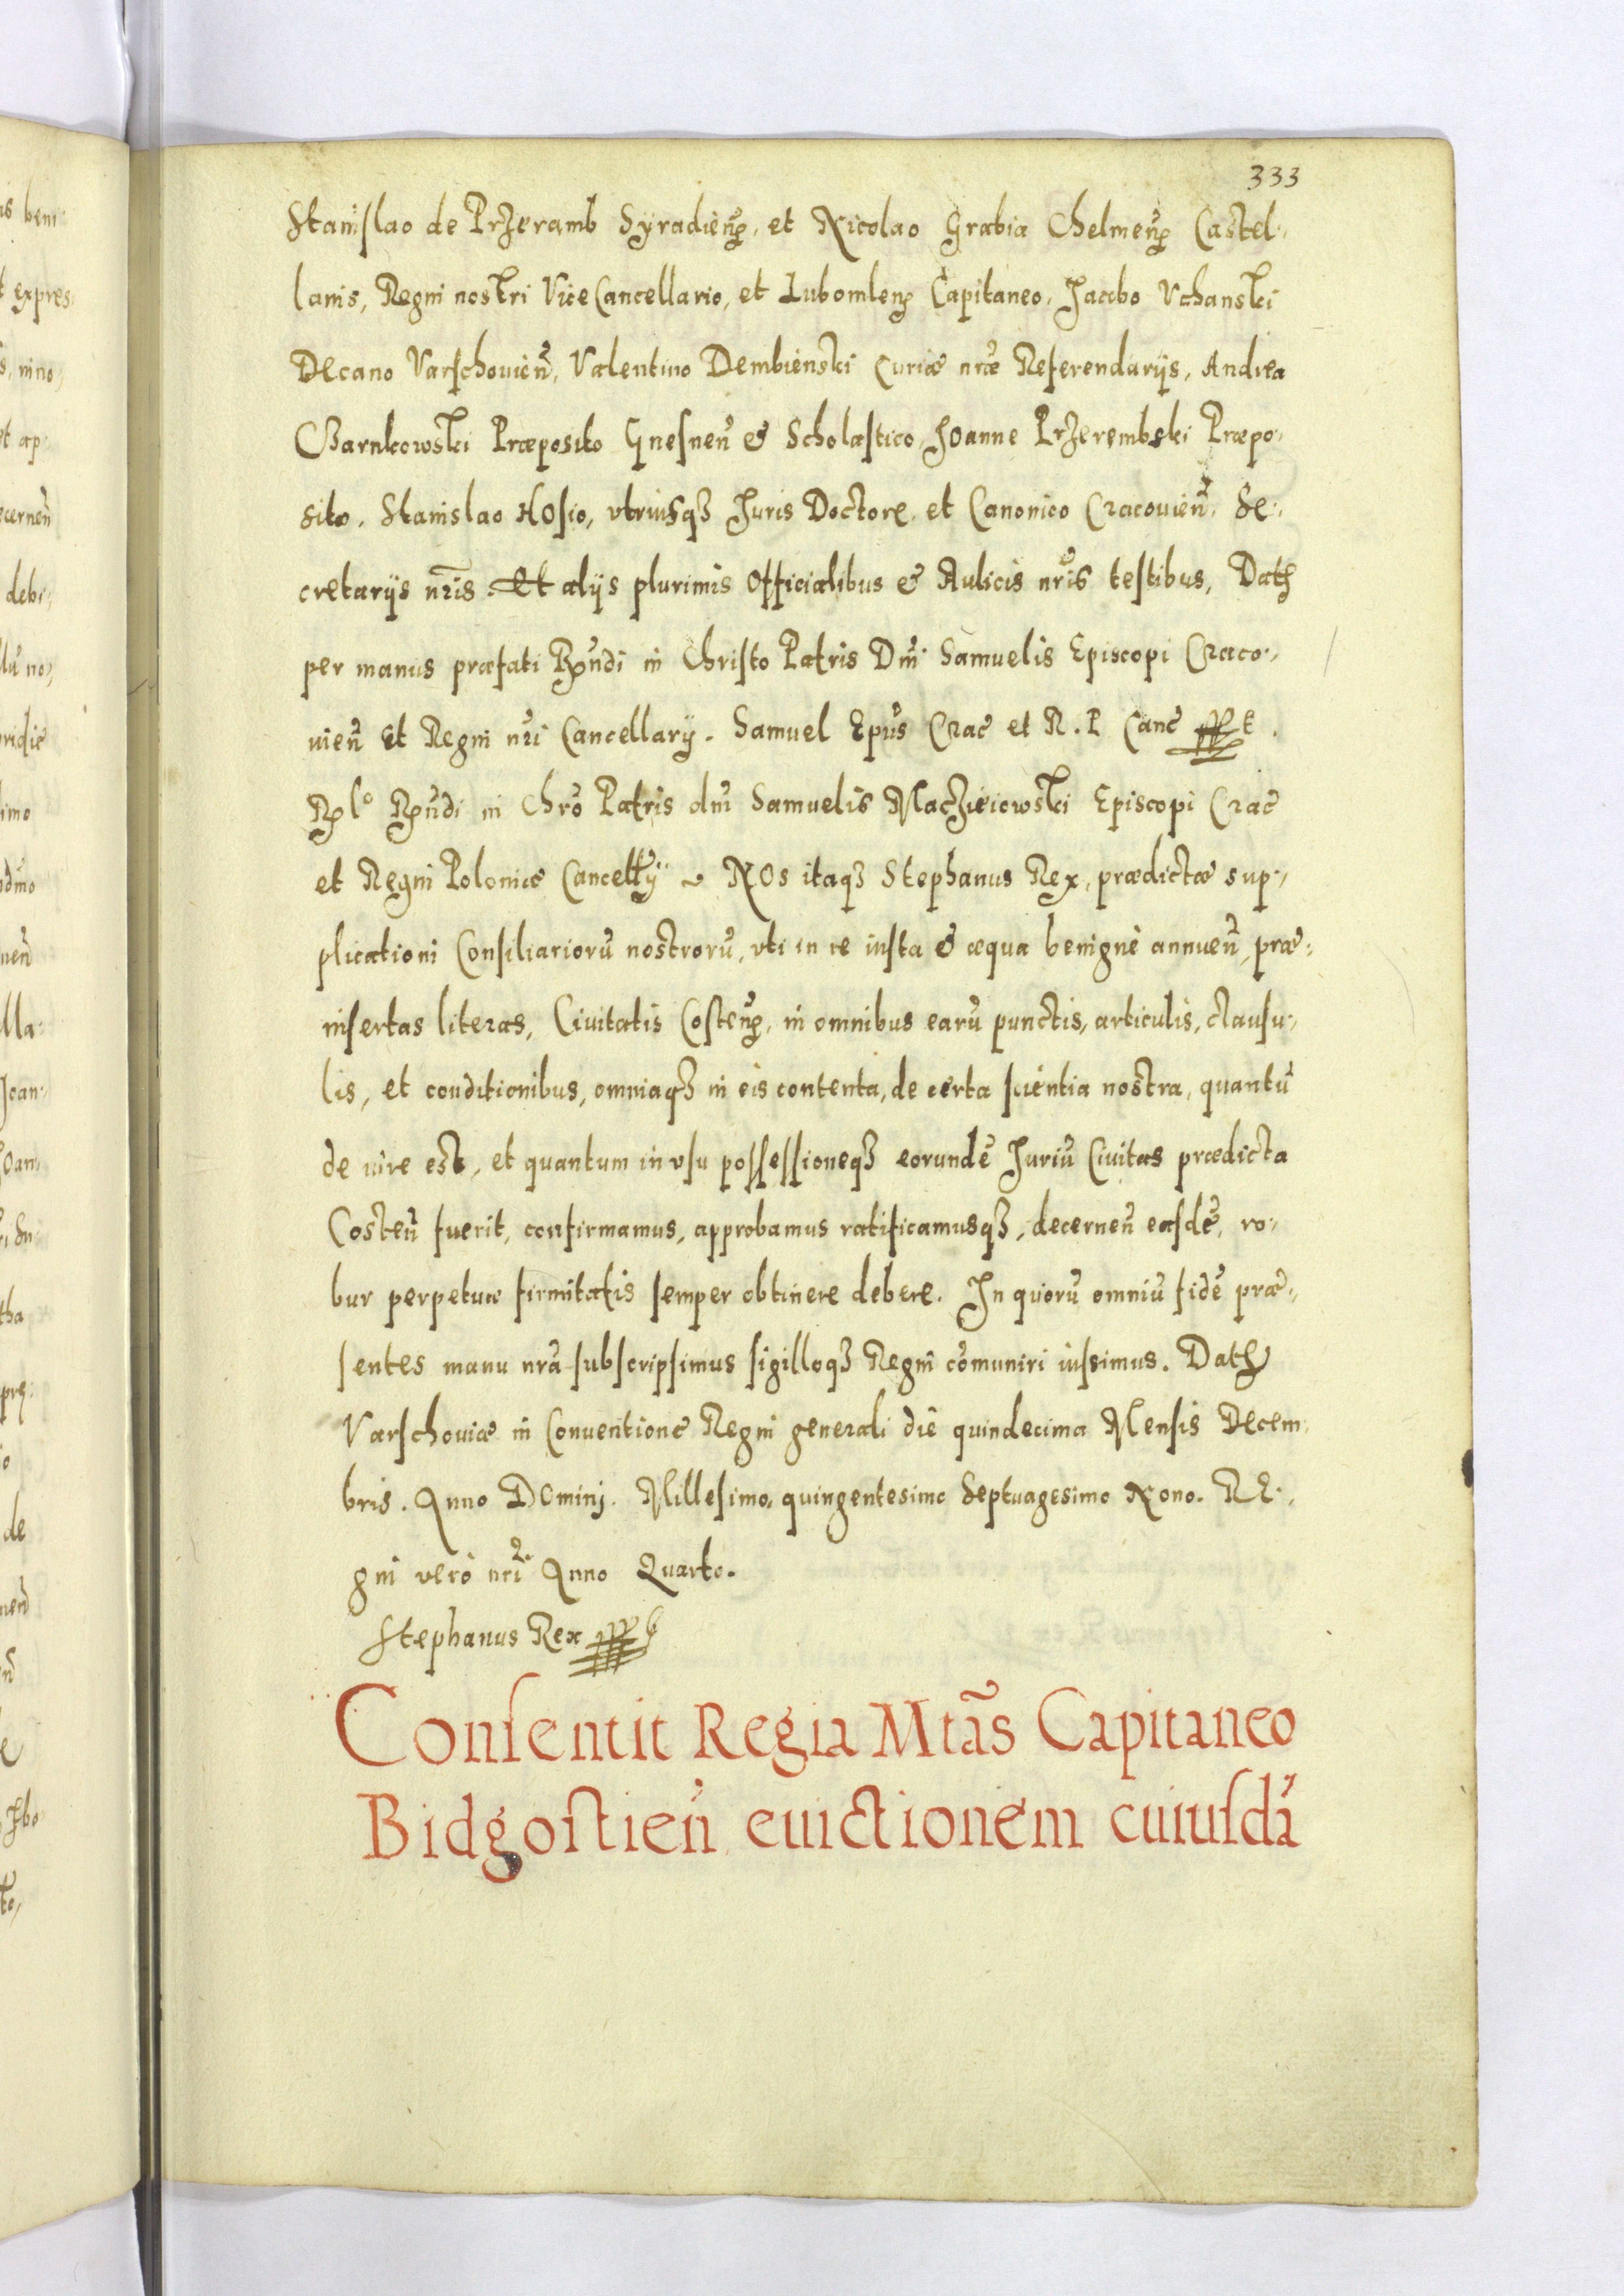 333
Stanislao de Przeramb Syradień, et Nicolao Grabia Chelmeń Castel-
lanis, Regni nostri ViceCancellario, et Lubomleń Capitaneo, Jacobo Vchanski
Decano Varschouień, Valentino Dembienski Curiæ nræ Referendarijs, Andrea
Czarnkowski Præposito Gnesneń & Scholastico, Joanne Przerembski Præpo-
sito, Stanislao HOsio, vtriusqȝ Juris Doctore, et Canonico Cracouień, Se-
cretarijs nr̃is Et alijs plurimis Officialibus & Aulicis nr̃is testibus, Dat
per manus præfati Rndi in Christo Patris Dni Samuelis Episcopi Craco-
uień et Regni nr̃i Cancellarij. Samuel Epũs Crac et R. P Canc
Rlo Rndi in Chrõ Patris dni Samuelis Maczieiowski Episcopi Crac
et Regni Poloniæ Cancellrij NOs itaqȝ Stephanus Rex, prædictæ sup-
plicationi Consiliariorũ nostrorũ, vti in re iusta & æqua benignè annueñ, præ-
insertas literas, Ciuitatis Costeñ, in omnibus earũ punctis, articulis, clausu-
lis, et conditionibus, omniaqȝ in eis contenta, de certa scientia nostra, quantũ
de iure est, et quantum in vsu possessioneqȝ eorundẽ Juriũ Ciuitas prædicta
Costeñ fuerit, confirmamus, approbamus ratificamusqȝ, decerneñ easdẽ, ro-
bur perpetuæ firmitatis semper obtinere debere. In quorũ omniũ fidẽ præ-
sentes manu nrã subscripsimus sigilloqȝ Regni cõmuniri iussimus. Dat
Varschouiæ in Conuentione Regni generali die quindecima Mensis Decem-
bris. Anno DOminj. Millesimo, quingentesimo Septuagesimo Nono. RE-
gni verò nr̃i Anno Quarto.
Stephanus Rex
Consentit Regia Mtãs Capitaneo
Bidgostieñ euictionem cuiusdã